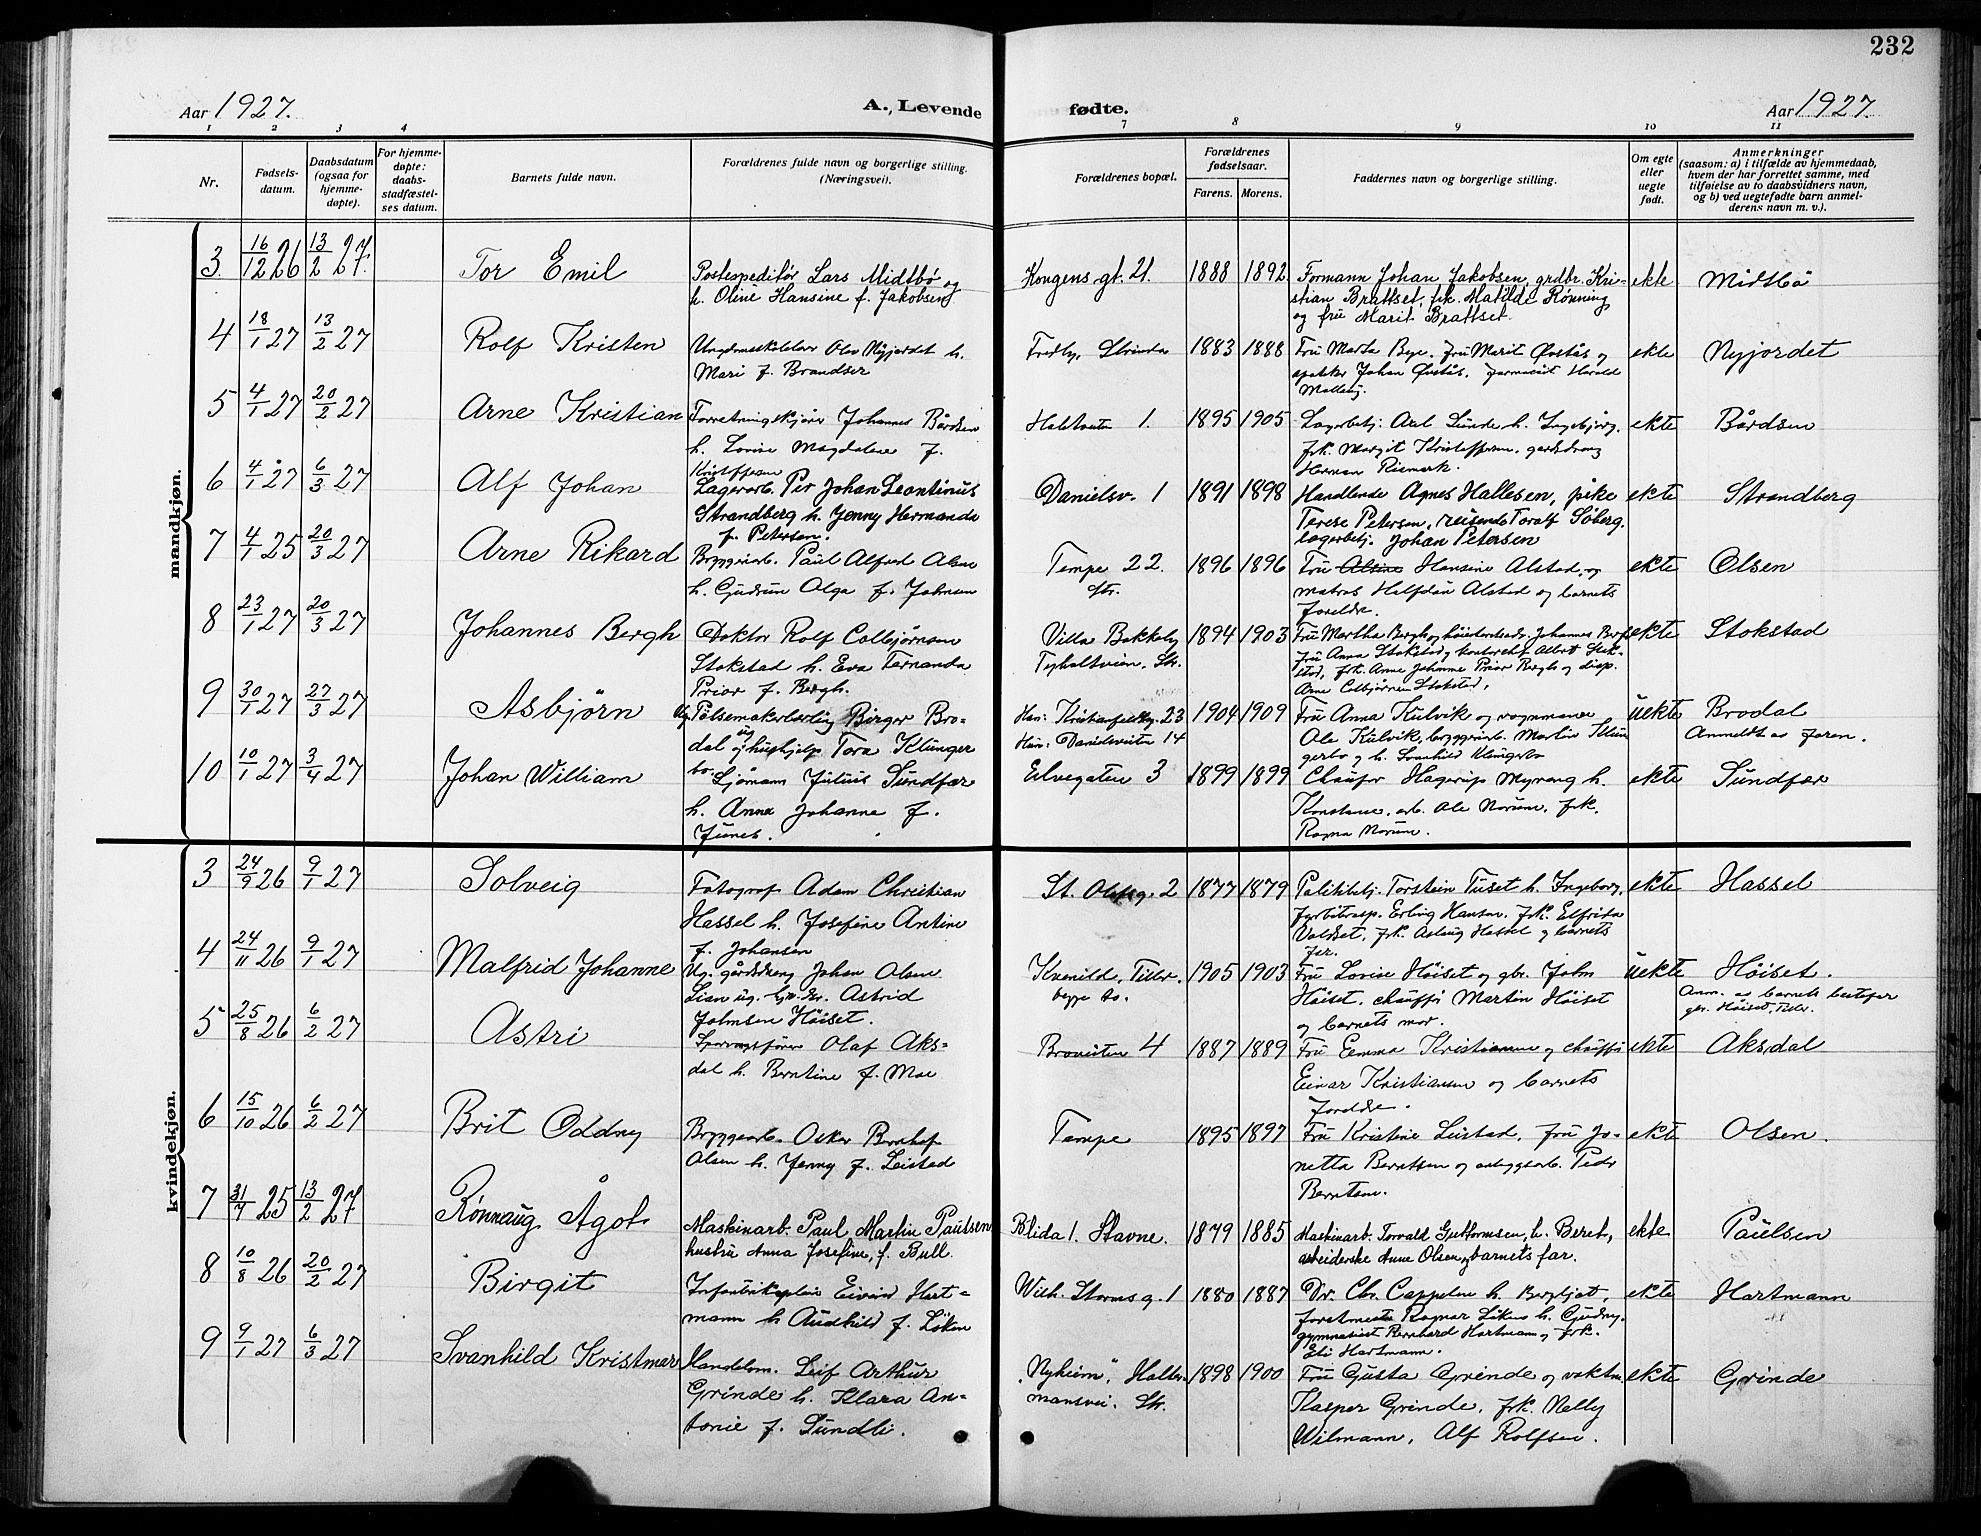 232
Aar 1927. A., Levende fødte. Aar 1927.
1 2 3 4 7 8 9 10 11
Nr.
Fødsels-
datum.
Daabsdatum
(ogsaa for
hjemme-
døpte).
For hjemme-
døpte:
daabs-
stadfæstel-
ses datum.
Barnets fulde navn.
Forældrenes fulde navn og borgerlige stilling.
(Næringsvei).
Forældrenes bopæl.
Forældrenes
fødselsaar.
Farens. Morens.
Faddernes navn og borgerlige stilling.
Om egte
eller
uegte
født.
Anmerkninger
(saasom: a) i tilfælde av hjemmedaab,
hvem der har forrettet samme, med
tilføielse av to daabsvidners navn,
og b) ved uegtefødte barn anmel-
derens navn m. v.).
mandkjøn.
3 16/12 26 13/2 27. Tor Emil
Postexpeditør Lars Midtbø og
h. Oline Hansine f. Jakobsen
Kongens gt. 21. 1888 1892
Formann Johan Jakobsen, grdbr. Kri-
stian Brattset, frk. Matilde Rønning
og fru Marit Brattset.
ekte Midtbø
4 18/1 27 13/2 27 Rolf Kristen
Ungdomsskolelærer Olav Nyjordet h.
Mari f. Brandser
Strinda 1883 1888
Fru Marta Bye. Fru Marit Øvstås og
apoteker Johan Øvstås, farmaceut Harald
ekte Nyjordet
5 4/1 27 20/2 27 Arne Kristian
Forretningskjører Johannes Bårdsen
h. Lovise Magdalene f.
Kristoffersen
1. 1895 1905
Lagerbetj. Axel Lunde h. Ingebjørg.
frk. Margit Kristoffersen, gårdsdreng
Herman
ekte Bårdsen
6 4/1 27 6/3 27 Alf Johan
Lagerarb. Per Johan Leontinus
Strandberg h. Jenny Hermanda
f. Petersen.
Danielsv. 1 1891 1898
Handlende Agnes Hallesen, pike
Terese Petersen, reisende Toralf Søberg,
lagerbetj. Johan Petersen
ekte Strandberg
7 4/1 25 20/3 27 Arne Rikard
Bryggeriarb. Paul Alfred Olsen
h. Gudrun Olga f. Johnsen
Tempe 22.
Str.
1896 1896
Fru Alsine Hansine Alstad, og
matros Halfdan Alstad og barnets
foreldre.
ekte Olsen
8 23/1 27 20/3 27 Johannes Bergh
Doktor Rolf Colbjørnsen
Stokstad h. Eva Fernanda
Prior f. Bergh.
Villa Bakkely
Tyholtveien, Str.
1894 1903
Fru Martha Bergh og høiesterettsadv. Johannes Bergh
fru Anna Stokstad og kontorchef Albert Stok-
stad, frk. Anne Johanne Prior Bergh og disp.
Arne Colbjørnsen Stokstad.
ekte Stokstad
9 30/1 27 27/3 27 Asbjørn
Ug. Pølsemakerlærling Birger Bro-
dal og ug. hushjelp Tora Klunger
bo.
Han: 23
Hun: Danielsveien 14
1904 1909
Fru Anna Kulvik og vognmann
Ole Kulvik, bryggeriarb. Martin Klun
gerbo og h. Svanhild Klungerbo
uekte Brodal
Anmeldt av faren.
10 10/1 27 3/4 27 Johan William
Sjømann Julius Sundfær
h. Anna Johanne f.
Junes.
Elvegaten 3 1899 1899
Chaufør Hagerup Myrang h.
Konstanse, arb. Ole Norum, frk.
Ragna Norum.
ekte Sundfær
kvindekjøn.
3 24/9 26 9/1 27 Solveig
Fotograf Adam Christian
Hassel h. Josefine Antine
f. Johansen
St. Olafsg. 2 1877 1879
Politibetj. Torstein Tuset h. Ingeborg,
fyrbøterasp. Erling Hansen, frk. Elfrida
Valdset, frk. Aslaug Hassel og barnets
far.
ekte Hassel
4 24/11 26 9/1 27 Malfrid Johanne
Ug. gårdsdreng Johan Olsen
Lian ug. Astrid
Johnsen Høiset.
Kvenilds, Tiller.
begge to.
1905 1903
Fru Lovise Høiset og gbr. John
Høiset, chauffør Martin Høiset
og barnets mor.
uekte Høiset.
Anm. av barnets bestefar
gbr. Høiset, Tiller.
5 25/8 26 6/2 27 Astri
Sporvognsfører Olaf Aks-
dal h. Berntine f. Moe
Broveiten 4 1887 1889
Fru Emma Kristiansen og chauffør
Einar Kristiansen og barnets
foreldre.
ekte Aksdal
6 15/10 26 6/2 27 Brit Oddny
Bryggearb. Oskar Bernhof
Olsen h. Jenny f. Leistad
Tempe 1895 1897
Fru Kristine Leistad, fru Jo-
netta Berntsen og anleggsarb. Peder
Berntsen.
ekte Olsen.
7 31/7 25 13/2 27 Rønnaug Ågot
Maskinarb. Paul Martin Paulsen
hustru Anna Josefine, f. Bull.
Blida 1. Stavne. 1879 1885
Maskinarb. Torvald Guttormsen, h. Beret,
arbeiderske Anne Olsen, og barnets far.
ekte Paulsen
8 10/8 26 20/2 27 Birgit
Infanterikaptein Eivind Hart-
mann h. Audhild f. Løken
Wilh. Stormsg. 1 1880 1887
Dr. Chr. Cappelen h. Bergljot,
forstmester Ragnar Løken h. Gudny,
gymnasiast Bernhard Hartmann og frk.
Hartmann.
ekte Hartmann
9 9/1 27 6/3 27 Svanhild Kristmar
Handelsm. Leif Arthur
Grinde h. Klara An-
tonie f. Sundli.
"Nyheim", Halter-
mansvei. Str.
1898 1900
Fru Gusta Grinde og vaktm.
Kasper Grinde, frk. Nelly
Wilmann, Alf Rolfsen.
ekte Grinde